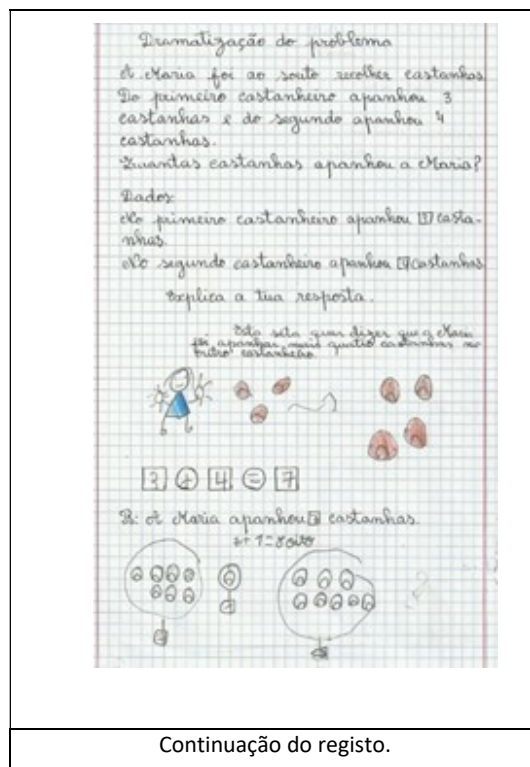 Dramatização do problema
A Maria foi ao souto recolher castanhas.
Do primeiro castanheiro apanhou 3
castanhas e do segundo apanhou 4
castanhas.
Quantas castanhas apanhou a Maria?
Dados:
No primeiro castanheiro apanhou 3 casta-
nhas.
No segundo castanheiro apanhou 4 castanhas
Explica a tua resposta.
Esta seta quer dizer que a Maria
foi apanhar mais quatro castanhas no
outro castanheiro.
3 + 4 = 7
R: A Maria apanhou castanhas.
7+1=8 oito
1
Continuação do registo.